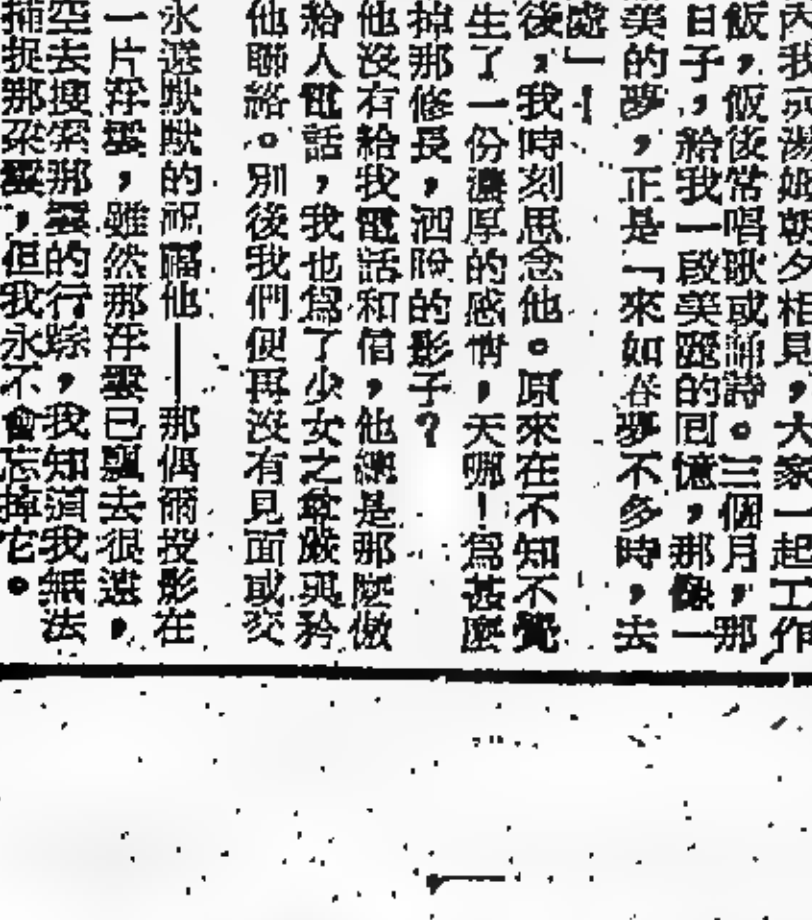 我京湯姐朝夕相見,大家一起工作
飯,飯後常唱歌或誦詩。三個月,那
日子,給我一段美麗的回憶,那像一
美的夢,正是「來如春夢不多時,去
處」!
後,我時刻思念他。原來在不知不覺
生了一份濃厚的感情,天哪!爲甚麼
掉那修長,洒脫的影子?
他沒有給我電話和信,他總是那麼傲
給人電話,我也爲了少女之尊嚴與矜
他聯絡。別後我們便再沒有見面或交
永遠默默的祝福他——那偶爾投影在
一片浮雲,雖然那浮雲已飄去很遠,
空去搜索那雲的行踪,我知道我無法
捕捉那朶雲,但我永不會忘掉它。